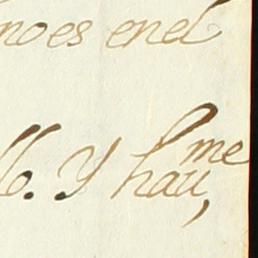 noes enel
llo. Y hau,me